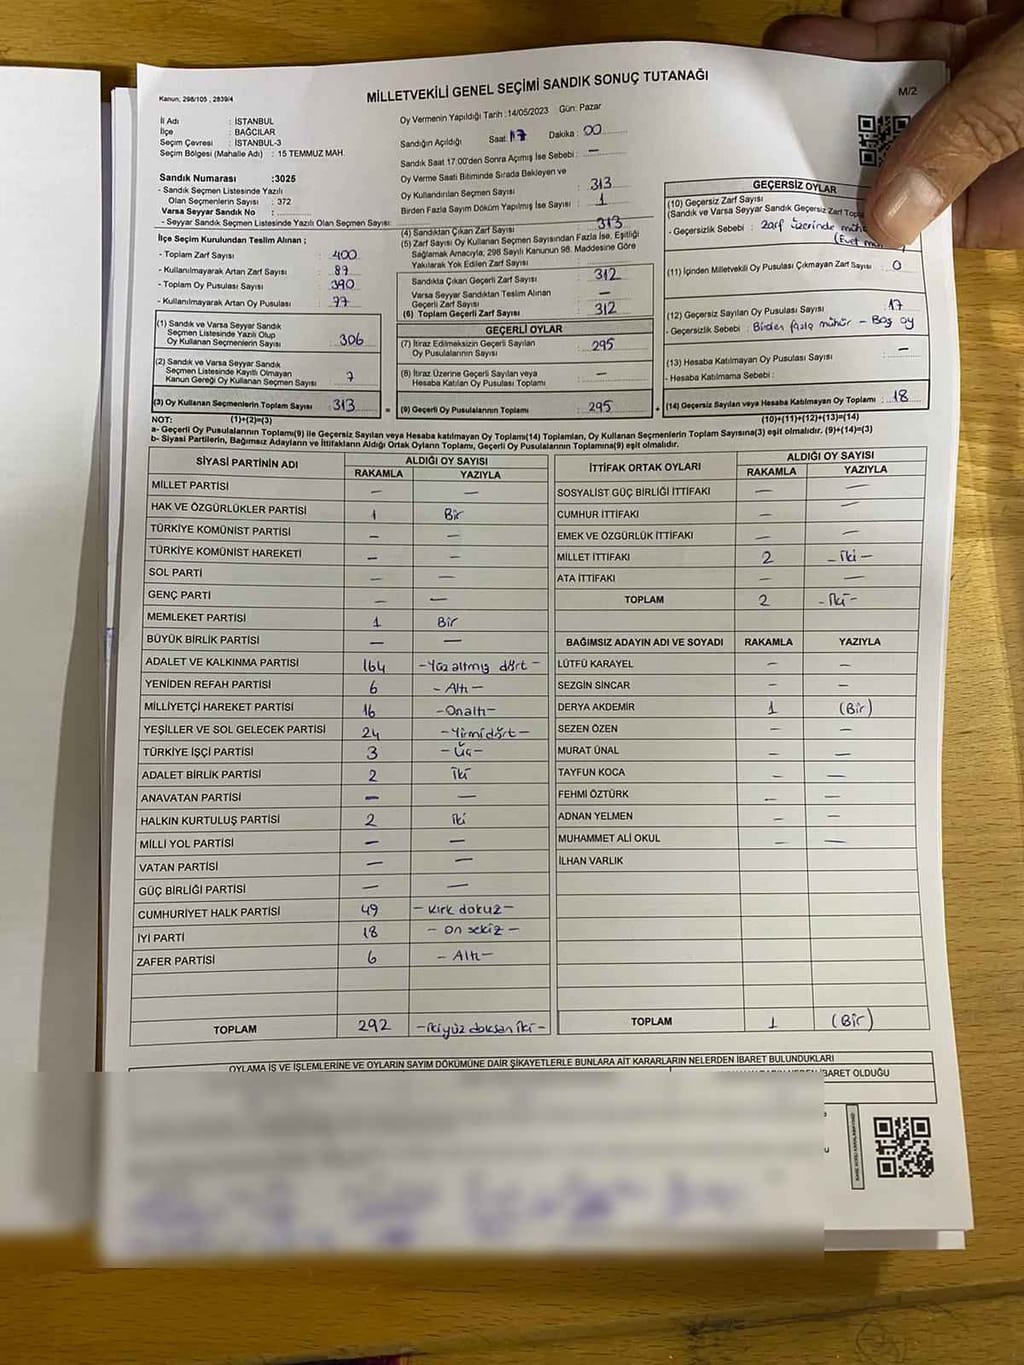 MİLLETVEKİLİ GENEL SEÇİMİ SANDIK SONUÇ TUTANAĞI
Kanun; 298/105 , 2839/4
M/2
İl Adı : İSTANBUL
İlçe : BAĞCILAR
Seçim Çevresi : İSTANBUL-3
Seçim Bölgesi (Mahalle Adı) : 15 TEMMUZ MAH.
Sandık Numarası :3025
- Sandık Seçmen Listesinde Yazılı
Olan Seçmenlerin Sayısı : 372
Varsa Seyyar Sandık No :
- Seyyar Sandık Seçmen Listesinde Yazılı Olan Seçmen Sayısı:
İlçe Seçim Kurulundan Teslim Alınan ;
- Toplam Zarf Sayısı : 400
- Kullanılmayarak Artan Zarf Sayısı : 87
- Toplam Oy Pusulası Sayısı : 390
- Kullanılmayarak Artan Oy Pusulası : 77
(1) Sandık ve Varsa Seyyar Sandık
Seçmen Listesinde Yazılı Olup
Oy Kullanan Seçmenlerin Sayısı : 306
(2) Sandık ve Varsa Seyyar Sandık
Seçmen Listesinde Kayıtlı Olmayan
Kanun Gereği Oy Kullanan Seçmen Sayısı : 7
(3) Oy Kullanan Seçmenlerin Toplam Sayısı : 313
Oy Vermenin Yapıldığı Tarih :14/05/2023 Gün: Pazar
Sandığın Açıldığı Saat: 17 Dakika : 00
Sandık Saat 17:00'den Sonra Açımış İse Sebebi : —
Oy Verme Saati Bitiminde Sırada Bekleyen ve
Oy Kullandırılan Seçmen Sayısı : 313
Birden Fazla Sayım Döküm Yapılmış İse Sayısı : 1
(4) Sandıktan Çıkan Zarf Sayısı : 313
(5) Zarf Sayısı Oy Kullanan Seçmen Sayısından Fazla İse, Eşitliği
Sağlamak Amacıyla; 298 Sayılı Kanunun 98. Maddesine Göre
Yakılarak Yok Edilen Zarf Sayısı :
Sandıkta Çıkan Geçerli Zarf Sayısı : 312
Varsa Seyyar Sandıktan Teslim Alınan
Geçerli Zarf Sayısı : —
(6) Toplam Geçerli Zarf Sayısı : 312
GEÇERLİ OYLAR
(7) İtiraz Edilmeksizin Geçerli Sayılan
Oy Pusulalarının Sayısı : 295
(8) İtiraz Üzerine Geçerli Sayılan veya
Hesaba Katılan Oy Pusulası Toplamı : —
= (9) Geçerli Oy Pusulalarının Toplamı : 295
GEÇERSİZ OYLAR
(10) Geçersiz Zarf Sayısı
(Sandık ve Varsa Seyyar Sandık Geçersiz Zarf Topla
- Geçersizlik Sebebi : Zarf üzerinde müh
(Evet m
(11) İçinden Milletvekili Oy Pusulası Çıkmayan Zarf Sayısı : 0
(12) Geçersiz Sayılan Oy Pusulası Sayısı : 17
- Geçersizlik Sebebi : Birden fazla mühür - Boş oy
(13) Hesaba Katılmayan Oy Pusulası Sayısı : —
- Hesaba Katılmama Sebebi :
+ (14) Geçersiz Sayılan veya Hesaba Katılmayan Oy Toplamı : 18
NOT: (1)+(2)=(3) (10)+(11)+(12)+(13)=(14)
a- Geçerli Oy Pusulalarının Toplamı(9) ile Geçersiz Sayılan veya Hesaba katılmayan Oy Toplamı(14) Toplamları, Oy Kullanan Seçmenlerin Toplam Sayısına(3) eşit olmalıdır. (9)+(14)=(3)
b- Siyasi Partilerin, Bağımsız Adayların ve İttifakların Aldığı Ortak Oyların Toplamı, Geçerli Oy Pusulalarının Toplamına(9) eşit olmalıdır.
SİYASİ PARTİNİN ADI ALDIĞI OY SAYISI
RAKAMLA YAZIYLA
MİLLET PARTİSİ — —
HAK VE ÖZGÜRLÜKLER PARTİSİ 1 Bir
TÜRKİYE KOMÜNİST PARTİSİ — —
TÜRKİYE KOMÜNİST HAREKETİ — —
SOL PARTİ — —
GENÇ PARTİ — —
MEMLEKET PARTİSİ 1 Bir
BÜYÜK BİRLİK PARTİSİ — —
ADALET VE KALKINMA PARTİSİ 164 -Yüz altmış dört-
YENİDEN REFAH PARTİSİ 6 -Altı-
MİLLİYETÇİ HAREKET PARTİSİ 16 -Onaltı-
YEŞİLLER VE SOL GELECEK PARTİSİ 24 -Yirmidört-
TÜRKİYE İŞÇİ PARTİSİ 3 -Üç-
ADALET BİRLİK PARTİSİ 2 İki
ANAVATAN PARTİSİ — —
HALKIN KURTULUŞ PARTİSİ 2 İki
MİLLİ YOL PARTİSİ — —
VATAN PARTİSİ — —
GÜÇ BİRLİĞİ PARTİSİ — —
CUMHURİYET HALK PARTİSİ 49 -Kırk dokuz-
İYİ PARTİ 18 -On sekiz-
ZAFER PARTİSİ 6 -Altı-
TOPLAM 292 -ikiyüz doksan iki-
İTTİFAK ORTAK OYLARI ALDIĞI OY SAYISI
RAKAMLA YAZIYLA
SOSYALİST GÜÇ BİRLİĞİ İTTİFAKI — —
CUMHUR İTTİFAKI — —
EMEK VE ÖZGÜRLÜK İTTİFAKI — —
MİLLET İTTİFAKI 2 -İki-
ATA İTTİFAKI — —
TOPLAM 2 -İki-
BAĞIMSIZ ADAYIN ADI VE SOYADI RAKAMLA YAZIYLA
LÜTFÜ KARAYEL — —
SEZGİN SİNCAR — —
DERYA AKDEMİR 1 (Bir)
SEZEN ÖZEN — —
MURAT ÜNAL — —
TAYFUN KOCA — —
FEHMİ ÖZTÜRK — —
ADNAN YELMEN — —
MUHAMMET ALİ OKUL — —
İLHAN VARLIK
TOPLAM 1 (Bir)
OYLAMA İŞ VE İŞLEMLERİNE VE OYLARIN SAYIM DÖKÜMÜNE DAİR ŞİKAYETLERLE BUNLARA AİT KARARLARIN NELERDEN İBARET BULUNDUKLARI
İBARET OLDUĞU